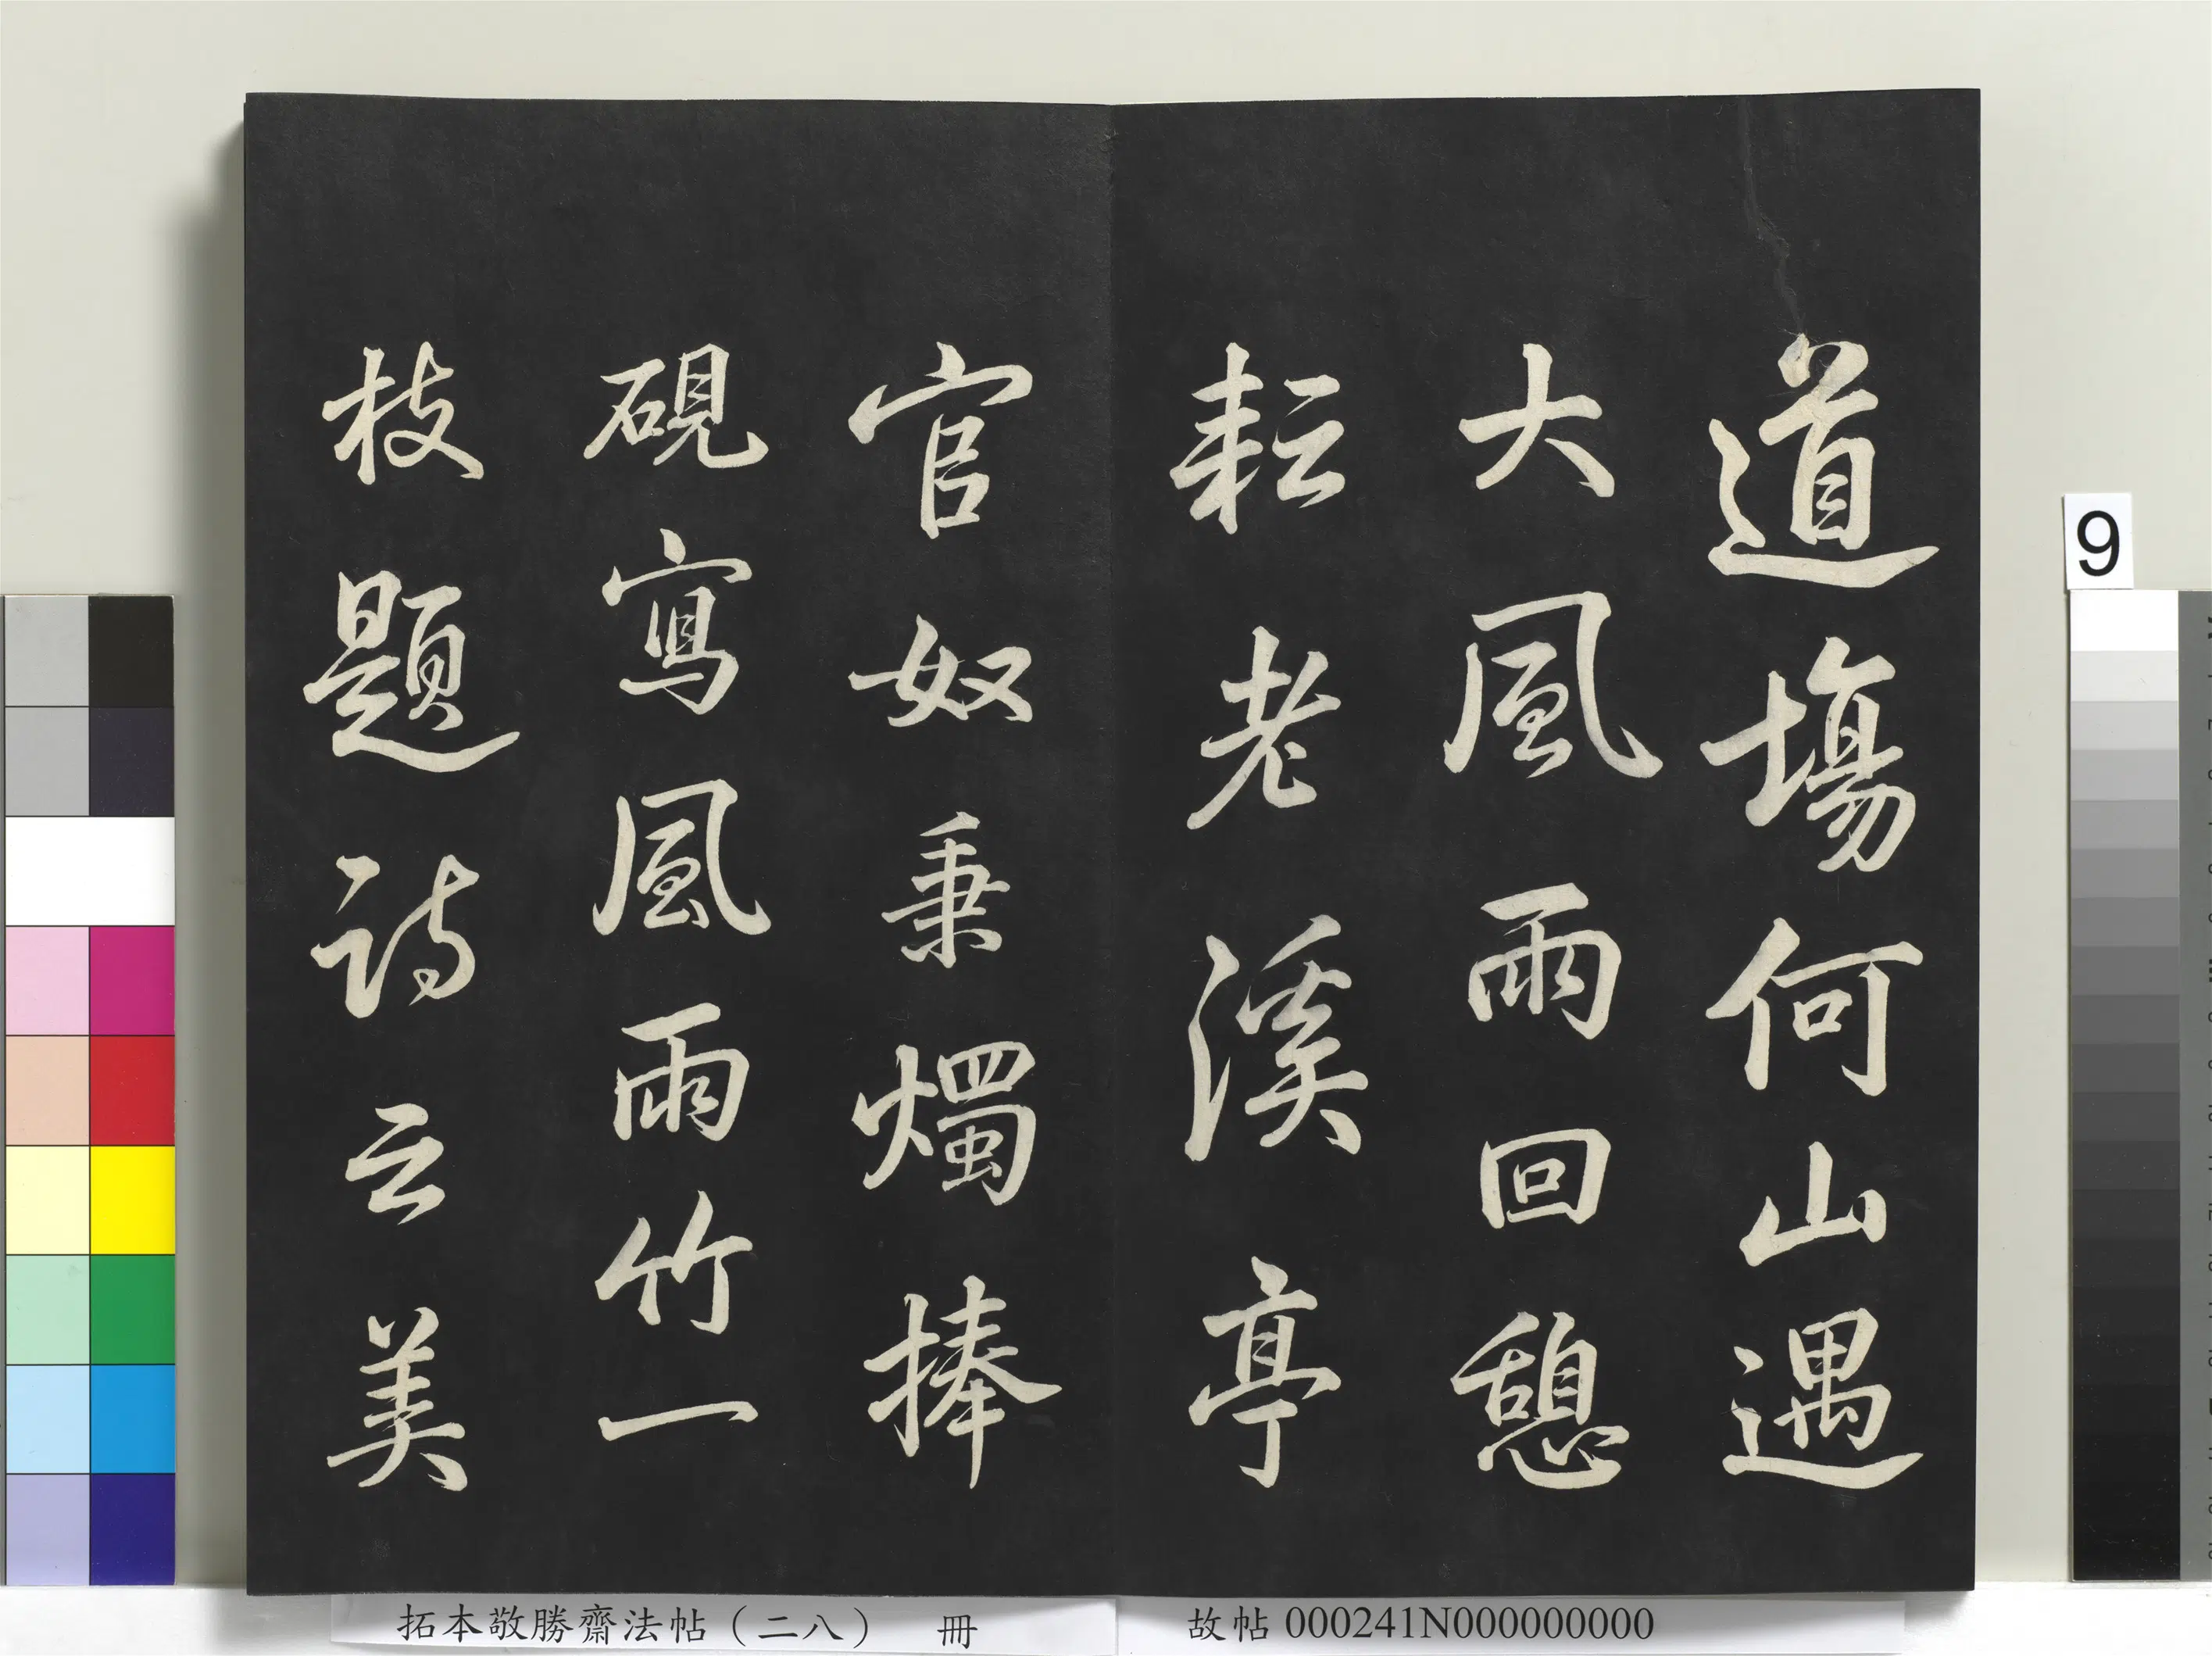 道場何山遇
大風雨回憩
耘老溪亭
官奴秉燭捧
硯寫風雨竹一
枝題詩云美
9
拓本敬勝齋法帖（二八） 冊
故帖 000241N000000000